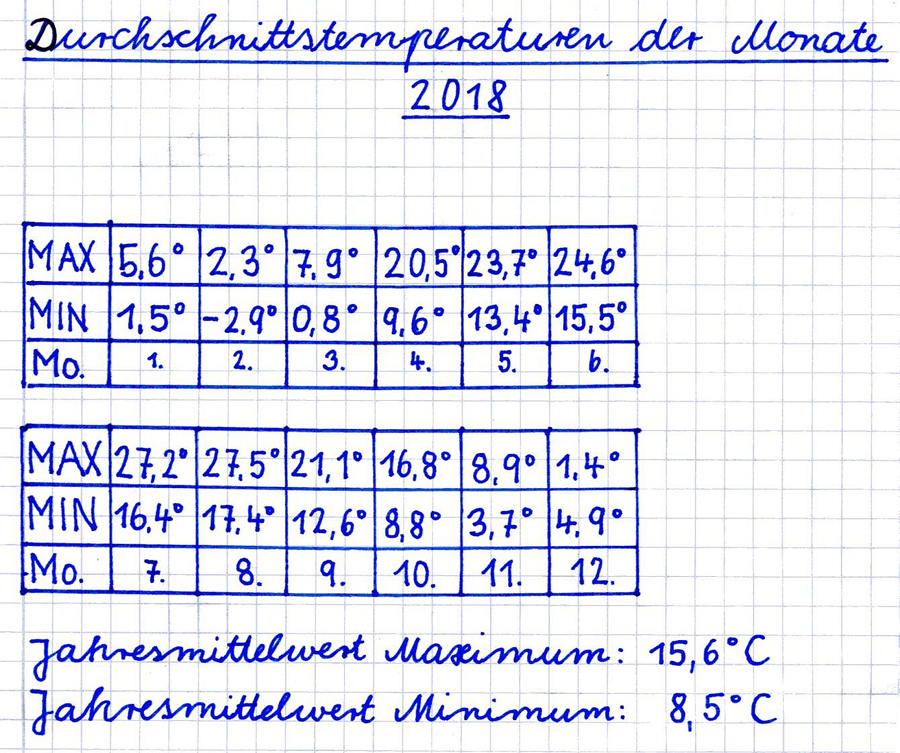 Durchschnittstemperaturen der Monate
2018
MAX 5,6° 2,3° 7,9° 20,5° 23,7° 24,6°
MIN 1,5° -2,9° 0,8° 9,6° 13,4° 15,5°
Mo. 1. 2. 3. 4. 5. 6.
MAX 27,2° 27,5° 21,1° 16,8° 8,9° 1,4°
MIN 16,4° 17,4° 12,6° 8,8° 3,7° 4,9°
Mo. 7. 8. 9. 10. 11. 12.
Jahresmittelwert Maximum: 15,6°C
Jahresmittelwert Minimum: 8,5°C